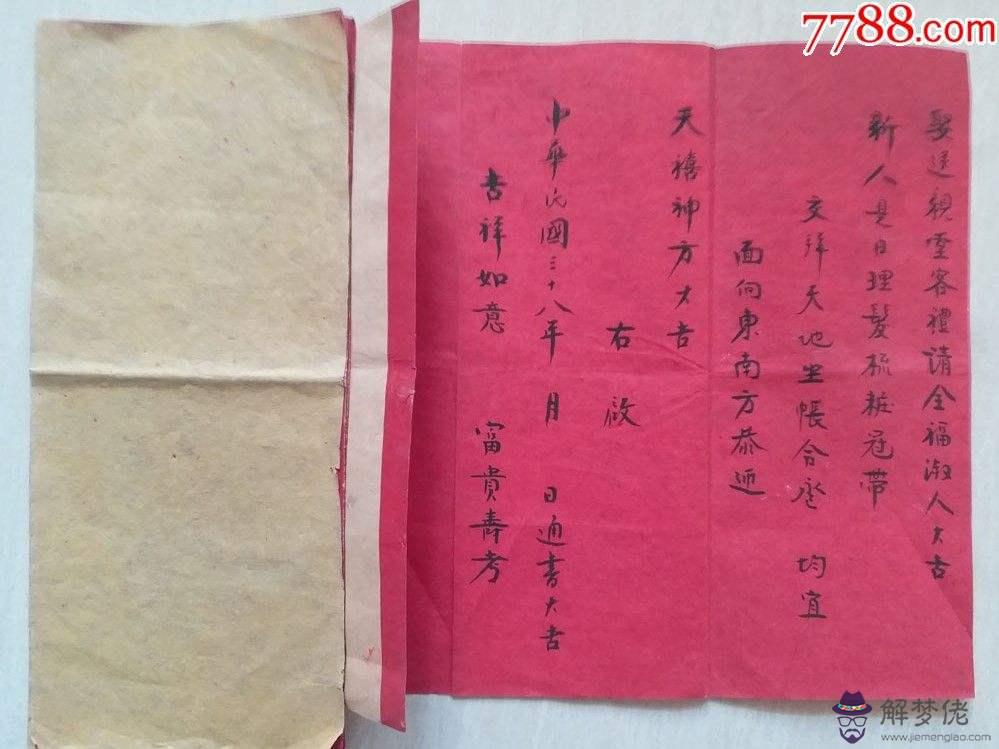 7788.com
娶送親童客禮請全福淑人大吉
新人是日理髮梳粧冠帶
交拜天地坐帳合卺 均宜
面向東南方恭迎
天禧神方大吉
右啟
中華民國三十八年 月 日通書大吉
吉祥如意 富貴壽考
解梦佬
www.jiemenglao.com